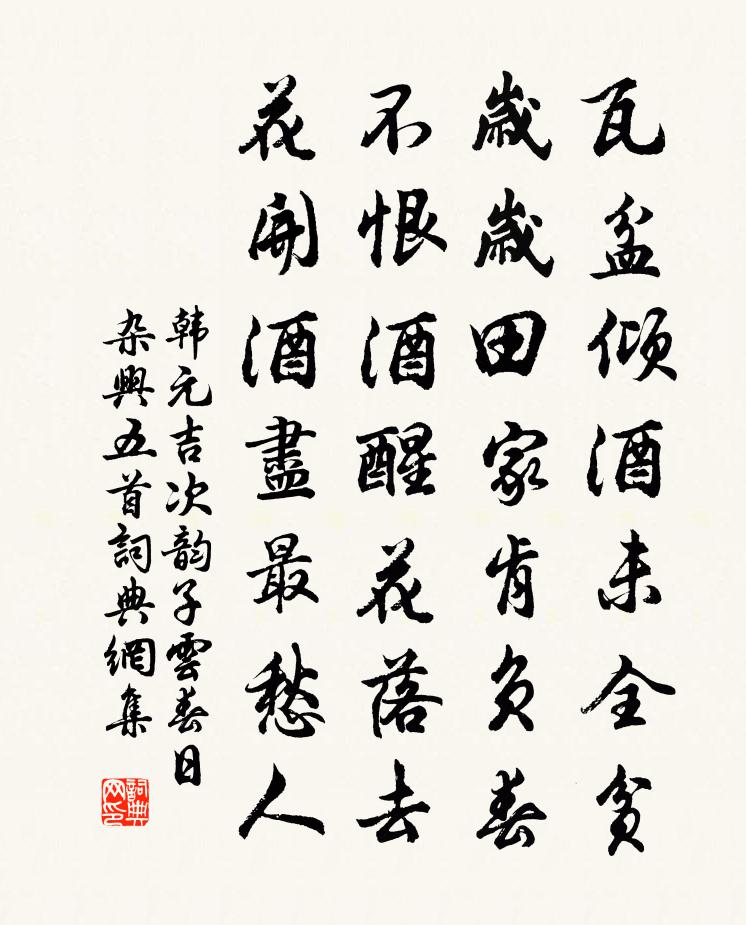 瓦盆倾酒未全贫
歳歳田家肯负春
不恨酒醒花落去
花開酒盡最愁人
韩元吉次韵子雲春日
杂興五首詞典網集
詞典网印